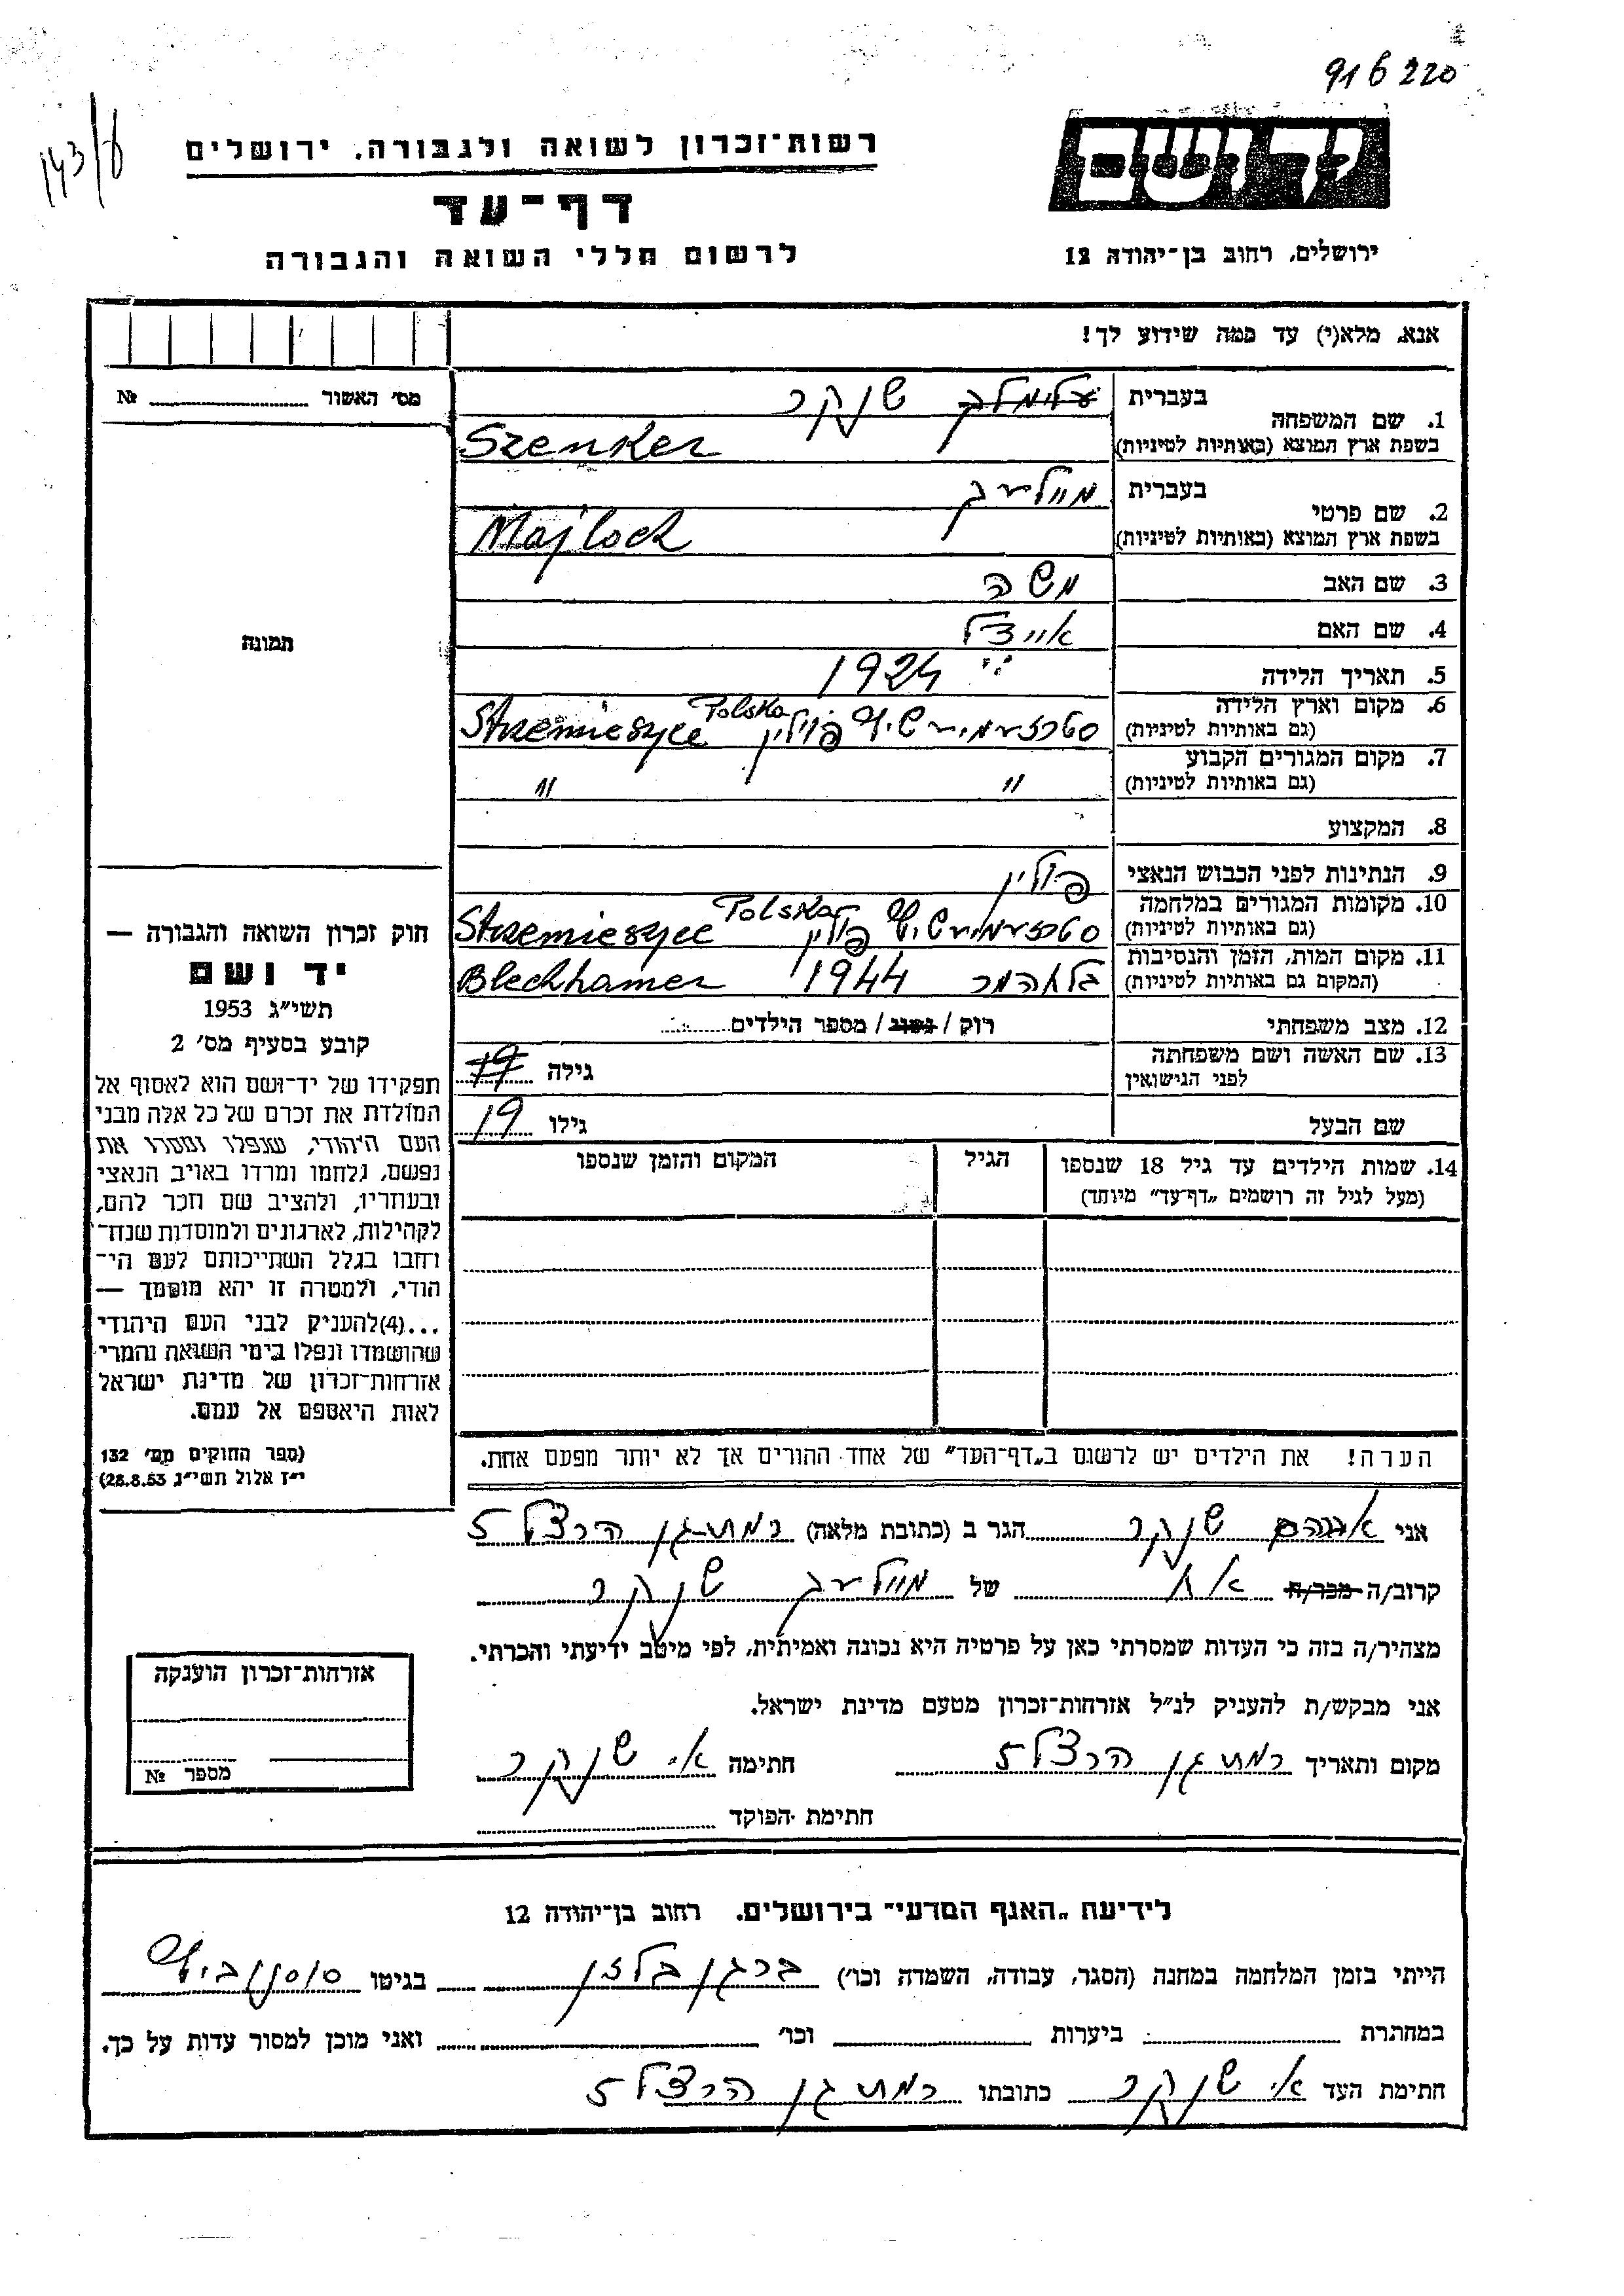 916220
143/6
יד ושם
רשות־זכרון לשואה ולגבורה, ירושלים
דף־עד
לרשום חללי השואה והגבורה
ירושלים, רחוב בן־יהודה 12
אנא, מלא(י) עד כמה שידוע לך!
מס' האשור № 
1. שם המשפחה
בעברית עלימלך שנקר
בשפת ארץ המוצא (באותיות לטיניות) Szenker
2. שם פרטי
בעברית מיילעך
בשפת ארץ המוצא (באותיות לטיניות) Majloch
3. שם האב משה
4. שם האם איידל
5. תאריך הלידה 1924
6. מקום וארץ הלידה
(גם באותיות לטיניות) פוילין Polska Strzemieszyce
7. מקום המגורים הקבוע
(גם באותיות לטיניות) " "
8. המקצוע
9. הנתינות לפני הכבוש הנאצי פולין
10. מקומות המגורים במלחמה
(גם באותיות לטיניות) פולין Polska Strzemieszyce
11. מקום המות, הזמן והנסיבות
(המקום גם באותיות לטיניות) בלאהמר 1944 Blechhamer
12. מצב משפחתי רוק / נשוב / מספר הילדים
13. שם האשה ושם משפחתה
לפני הנישואין גילה
שם הבעל גילו 19
14. שמות הילדים עד גיל 18 שנספו
(מעל לגיל זה רושמים „דף־עד" מיוחד)
הגיל
המקום והזמן שנספו
תמונה
חוק זכרון השואה והגבורה —
יד ושם
תשי"ג 1953
קובע בסעיף מס' 2
תפקידו של יד־ושם הוא לאסוף אל
המולדת את זכרם של כל אלה מבני
העם היהודי, שנפלו ומסרו את
נפשם, נלחמו ומרדו באויב הנאצי
ובעוזריו, ולהציב שם וזכר להם,
לקהילות, לארגונים ולמוסדות שנח־
רבו בגלל השתייכותם לעם הי־
הודי, ולמטרה זו יהא מוסמך —
...(4)להעניק לבני העם היהודי
שהושמדו ונפלו בימי השואה והמרי
אזרחות־זכרון של מדינת ישראל
לאות היאספם אל עמם.
(ספר החוקים מס' 132
י"ז אלול תשי"ג 28.8.53)
הערה! את הילדים יש לרשום ב„דף־העד" של אחד ההורים אך לא יותר מפעם אחת.
אני אברהם שנקר הגר ב (כתובת מלאה) רמת־גן הרצל 5
קרוב/ה מכר/ה אח של מיילעך שנקר
מצהיר/ה בזה כי העדות שמסרתי כאן על פרטיה היא נכונה ואמיתית, לפי מיטב ידיעתי והכרתי.
אני מבקש/ת להעניק לנ"ל אזרחות־זכרון מטעם מדינת ישראל.
מקום ותאריך רמת גן הרצל 5 חתימה א' שנקר
חתימת הפוקד
אזרחות־זכרון הוענקה
מספר №
לידיעת „האגף המדעי" בירושלים, רחוב בן־יהודה 12
הייתי בזמן המלחמה במחנה (הסגר, עבודה, השמדה וכו') ברגן בלזן בגיטו סוסנוביץ
במחתרת ביערות וכו' ואני מוכן למסור עדות על כך.
חתימת העד א' שנקר כתובתו רמת גן הרצל 5